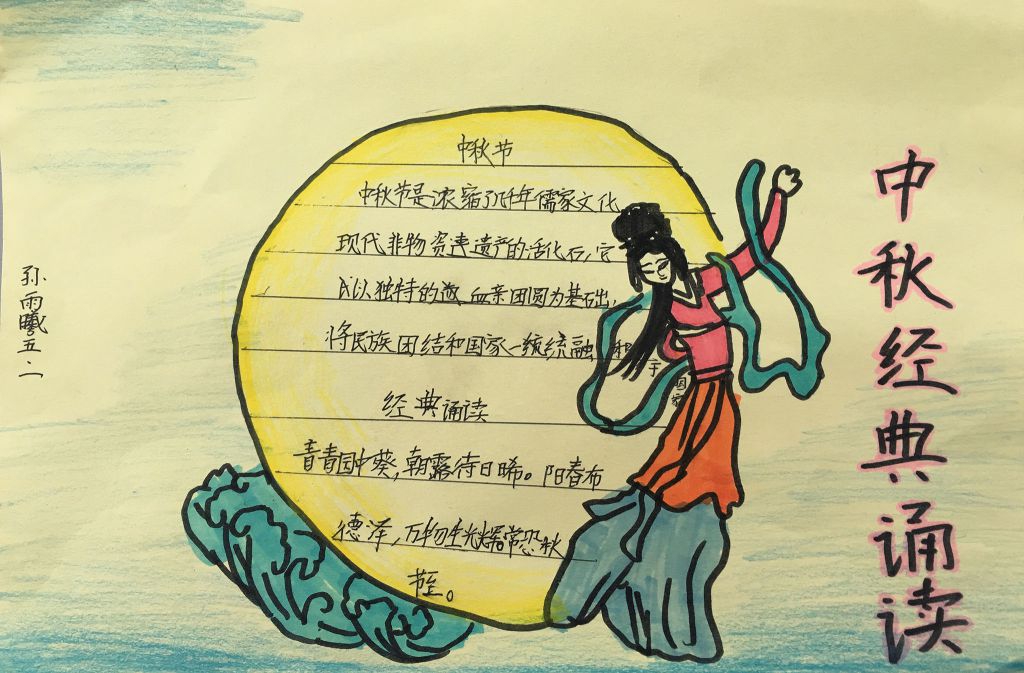 中秋经典诵读
中秋节
中秋节是浓缩了几千年儒家文化
现代非物资遗产的活化石,它
以独特的 血亲团圆为基础,
将民族团结和国家一统统融
于
国家
经典诵读
青青园中葵,朝露待日晞。阳春布
德泽,万物生光辉。常恐秋
节至。
孙雨曦五.二